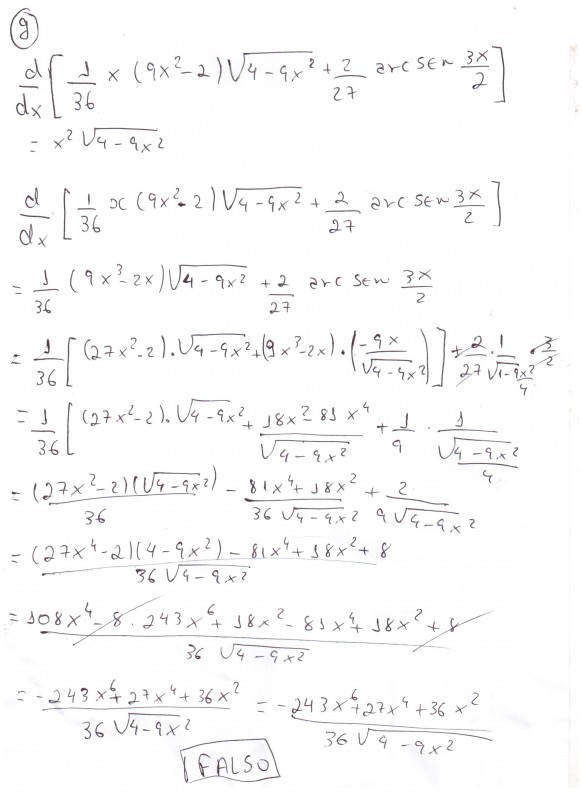 g
d/dx [ 1/36 x (9x²-2) √(4-9x²) + 2/27 arc sen 3x/2 ]
= x² √(4-9x²)
d/dx [ 1/36 x (9x²-2) √(4-9x²) + 2/27 arc sen 3x/2 ]
= 1/36 (9x³-2x) √(4-9x²) + 2/27 arc sen 3x/2
= 1/36 [ (27x²-2) . √(4-9x²) + (9x³-2x) . ( -9x/√(4-9x²) ) ] + 2/27 . 1/√(1-9x²/4) . 3/2
= 1/36 [ (27x²-2) . √(4-9x²) + (18x²-81x⁴)/√(4-9x²) + 1/9 . 1/√((4-9x²)/4)
= (27x²-2)(√(4-9x²))/36 - (81x⁴+18x²)/(36 √(4-9x²)) + 2/(9 √(4-9x²))
= ((27x⁴-2)(4-9x²) - 81x⁴+18x²+8)/(36 √(4-9x²))
= (108x⁴-8 . 243x⁶+18x²-81x⁴+18x²+8)/(36 √(4-9x²))
= (-243x⁶+27x⁴+36x²)/(36 √(4-9x²)) = (-243x⁶+27x⁴+36x²)/(36 √(4-9x²))
FALSO